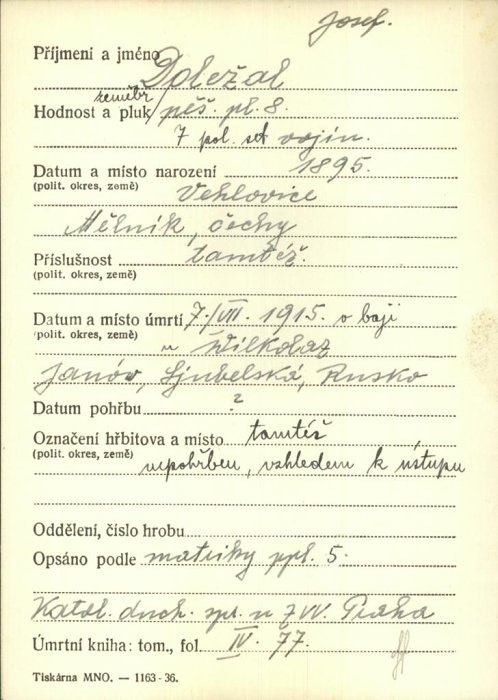 Josef.
Příjmení a jméno Doležal
zeměbr.
Hodnost a pluk/pěš. pl. 8.
7 pol. set. vojín.
Datum a místo narození 1895.
(polit. okres, země) Vehlovice
Mělník, čechy
Příslušnost tamtéž.
(polit. okres, země)
Datum a místo úmrtí 7./VII. 1915. v boji
(polit. okres, země) u Wilkolaz
Janóv, Ljubelská, Rusko
Datum pohřbu ?
Označení hřbitova a místo tamtéž
(polit. okres, země) nepohřben, vzhledem k ústupu
Oddělení, číslo hrobu
Opsáno podle matriky ppl. 5.
Katol. duch. spr. u ZVV. Praha
Úmrtní kniha: tom., fol. IV. 77.
Tiskárna MNO. — 1163-36.